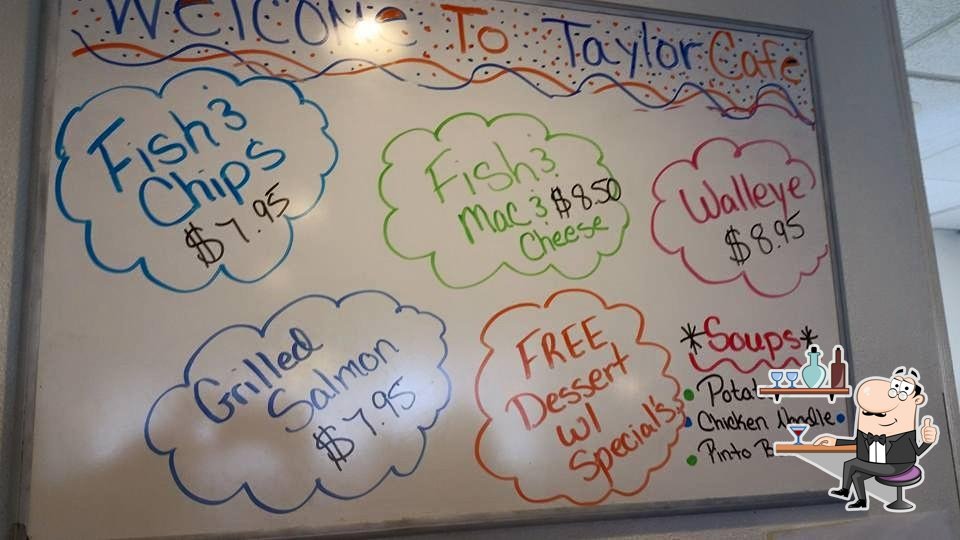 WELCOME To Taylor Cafe
Fish &
Chips
$7.95
Fish &
Mac & $8.50
Cheese
Walleye
$8.95
Grilled
Salmon
$7.95
FREE
Dessert
w/
Special's
*Soups*
Chicken Noodle
Pinto